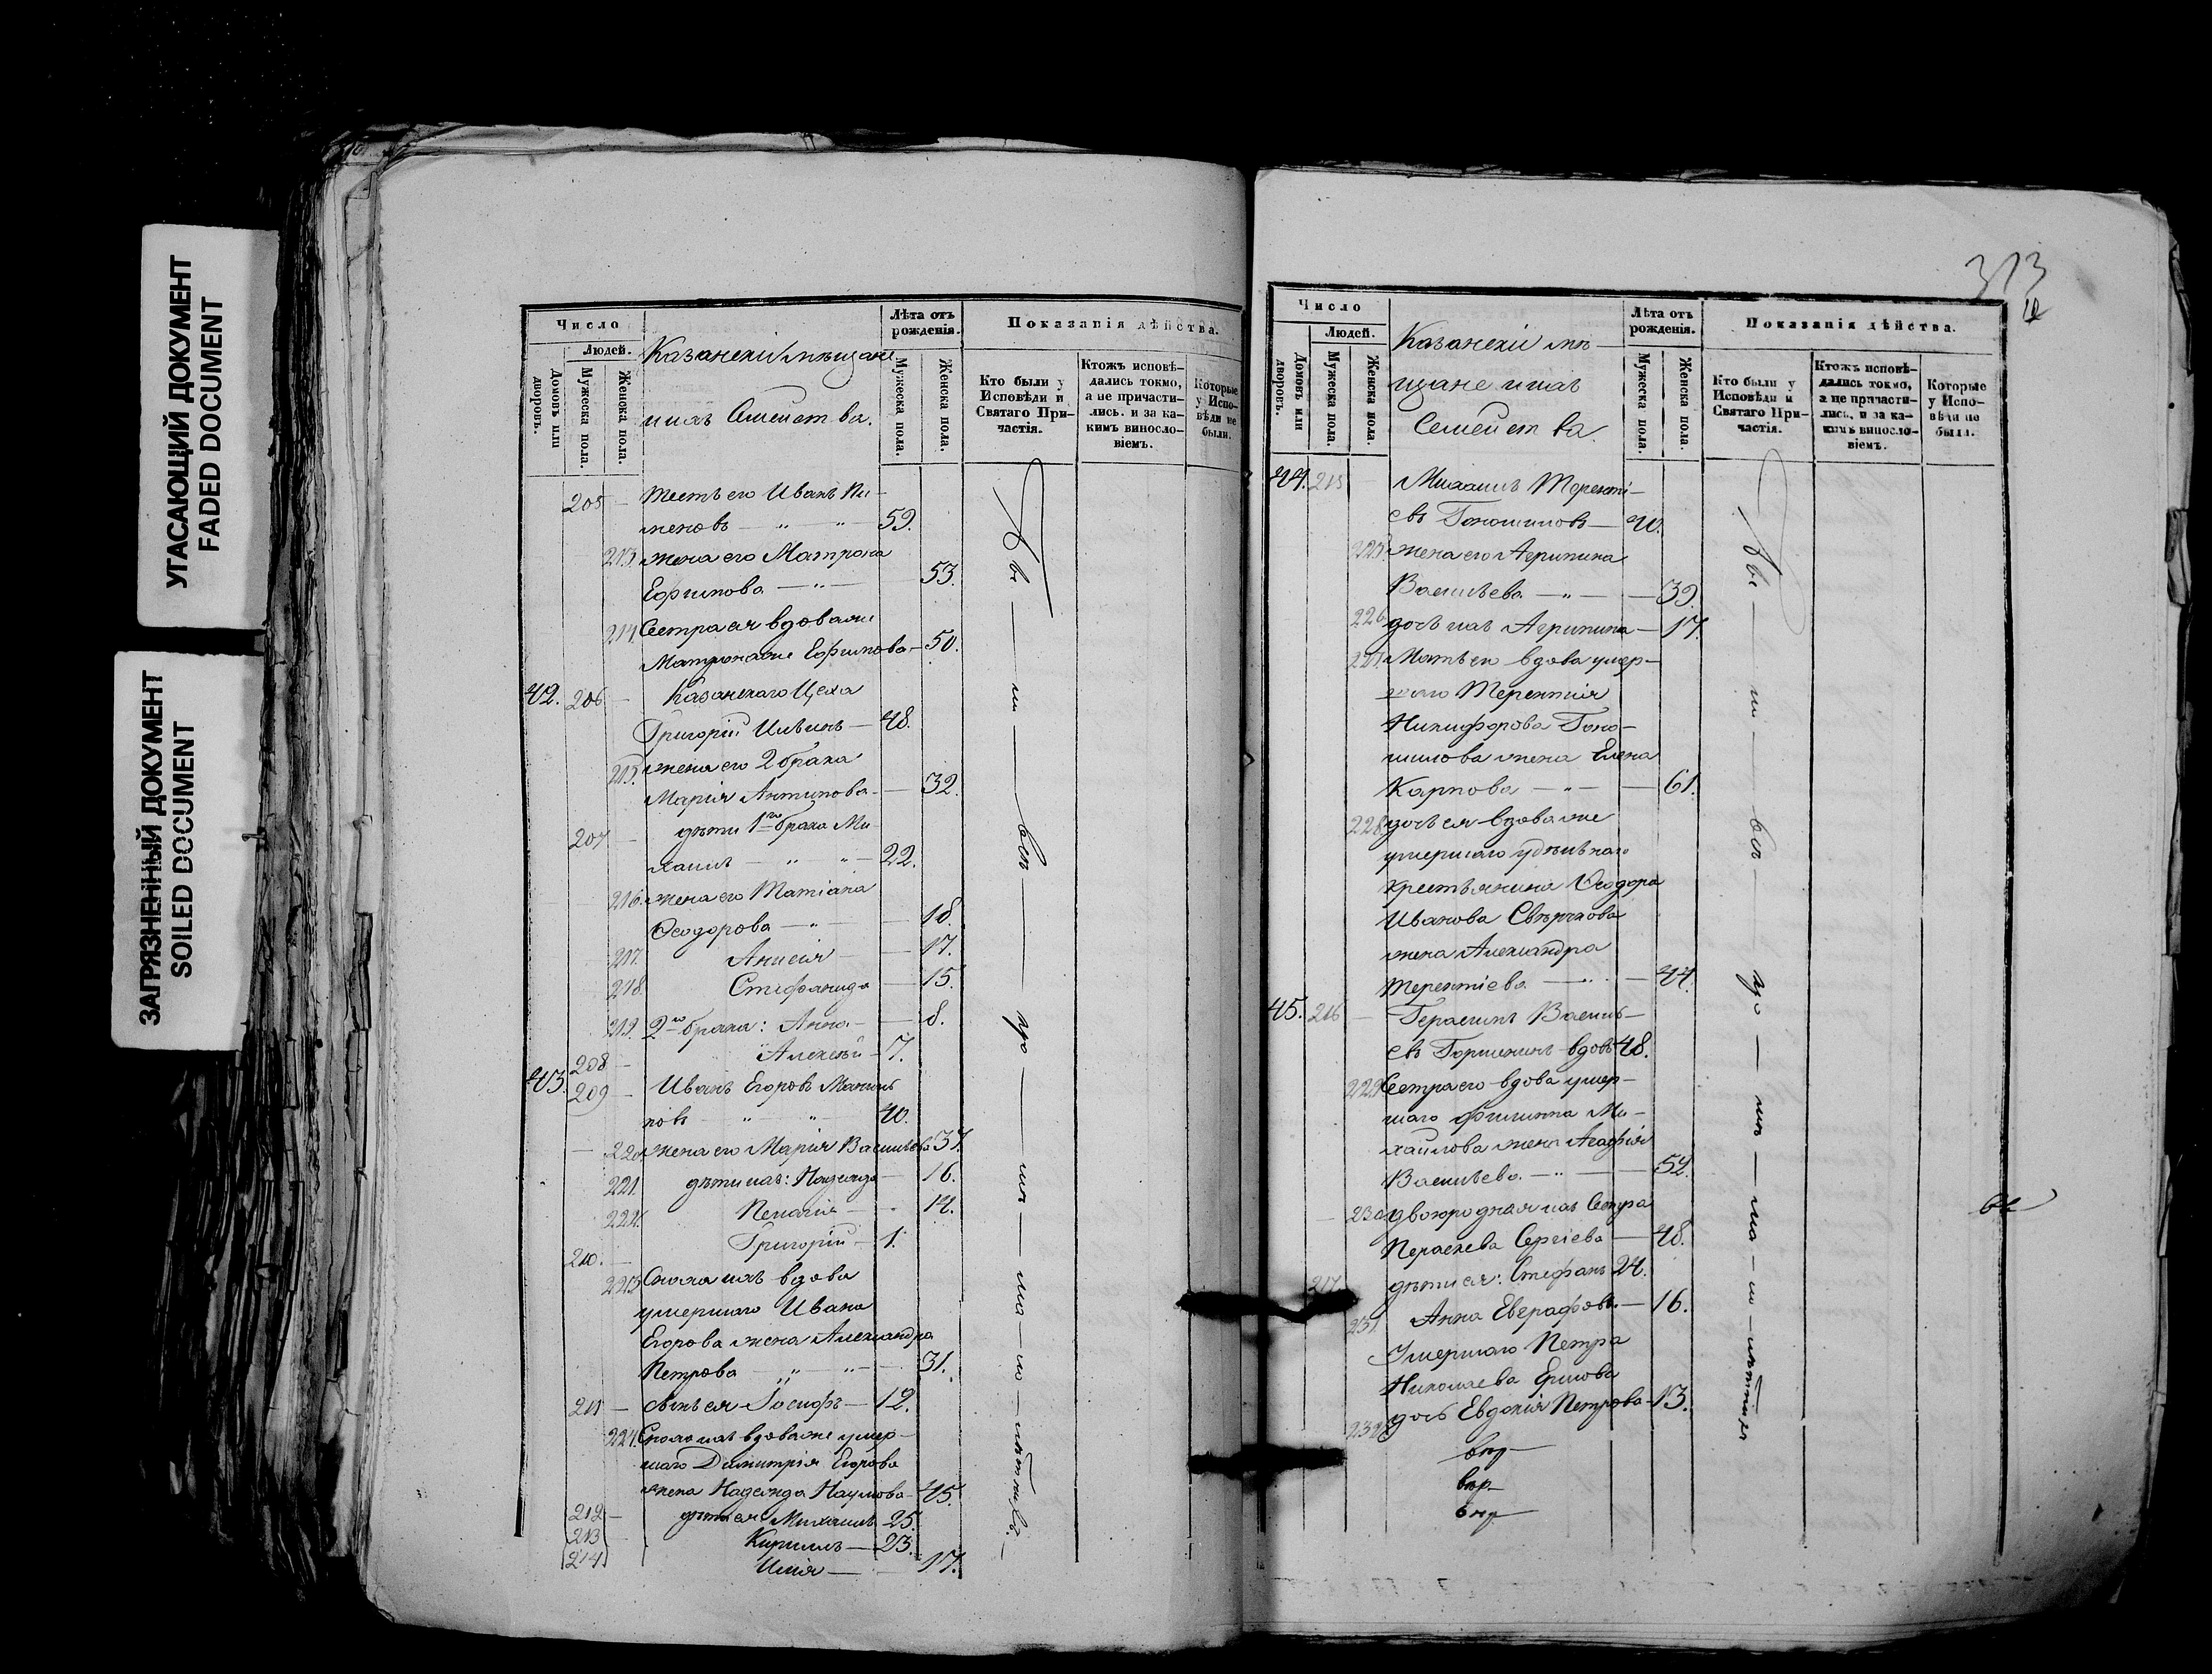 УГАСАЮЩИЙ ДОКУМЕНТ
FADED DOCUMENT
ЗАГРЯЗНЕННЫЙ ДОКУМЕНТ
SOILED DOCUMENT
Число
Людей.
Домовъ или дворовъ.
Мужеска пола.
Женска пола.
Казанскіе мѣщане
и ихъ Семейства.
Лѣта отъ рожденія.
Мужеска пола.
Женска пола.
Показанія дѣйства.
Кто были у Исповѣди и Святаго При-частія.
Ктожъ исповѣ-дались токмо, а не причасти-лись. и за ка-кимъ виносло-віемъ.
Которые у Испо-вѣди не были.
205 — тесть его Иванъ Пи-
меновъ — " — " — 59.
213. жена его Матрона
Ефимова — " — 53.
214. Сестра ея вдова же
Матрона же Ефимова — 50.
42. 206 — Казанскаго Цеха
Григорій Ильинъ — 48.
215. жена его 2 брака
Марія Антипова — 32.
207 — дѣти 1го брака Ми-
хаилъ — " — " — 22.
216. жена его Татіана
Ѳеодорова — " — 18.
217. Анисія — 17.
218. Стефанида — 15.
219. 2го брака: Анна — 8.
208 — Алексѣй — 7.
43. 209 — Иванъ Егоровъ
новъ " " 40.
220. жена его Марія Васильева 37.
221. дѣти ихъ: Надежда — 16.
222. Пелагія — 14.
210. — Григорій — 1.
223. Сноха ихъ вдова
умершаго Ивана
Егорова жена Александра
Петрова — " — " — 31.
211 — сынъ ея Іосифъ — 12.
224. Сноха ихъ вдова же умер-
шаго Димитрія Егорова
жена Надежда Наумова — 45.
212 — дѣти ея Михаилъ 25.
213 Кириллъ — 23.
214 Илія — 17.
Всѣ
313
Число
Людей.
Домовъ или дворовъ.
Мужеска пола.
Женска пола.
Казанскіе мѣ-
щане и ихъ
Семейства.
Лѣта отъ рожденія.
Мужеска пола.
Женска пола.
Показанія дѣйства.
Кто были у Исповѣди и Святаго При-частія.
Ктожъ исповѣ-дались токмо, а не причасти-лись, и за ка-кимъ виносло-віемъ.
Которые у Испо-вѣди не были.
44. 215 — Михаилъ Теренті-
евъ — 40.
225. жена его Агрипина
Васильева — " — 39.
226. дочь ихъ Агрипина — 17.
227. Мать его вдова умер-
шаго Терентія
Никифорова
жена Елена
Карпова — " — 61.
228. дочь ея вдова же
умершаго удѣльнаго
крестьянина Ѳеодора
Иванова
жена Александра
Терентіева — " — 44.
45. 216 — Герасимъ Василь-
евъ вдовъ 48.
229. Сестра его вдова умер-
шаго Филиппа Ми-
хайлова жена Агафія
Васильева — " — 52.
230. двоюродная ихъ Сестра
Параскева Сергіева — 48.
217. дѣти ея: Стефанъ 24.
231. Анна Евграфова — 16.
Умершаго Петра
Николаева Ершова
232. дочь Евдокія Петрова — 13.